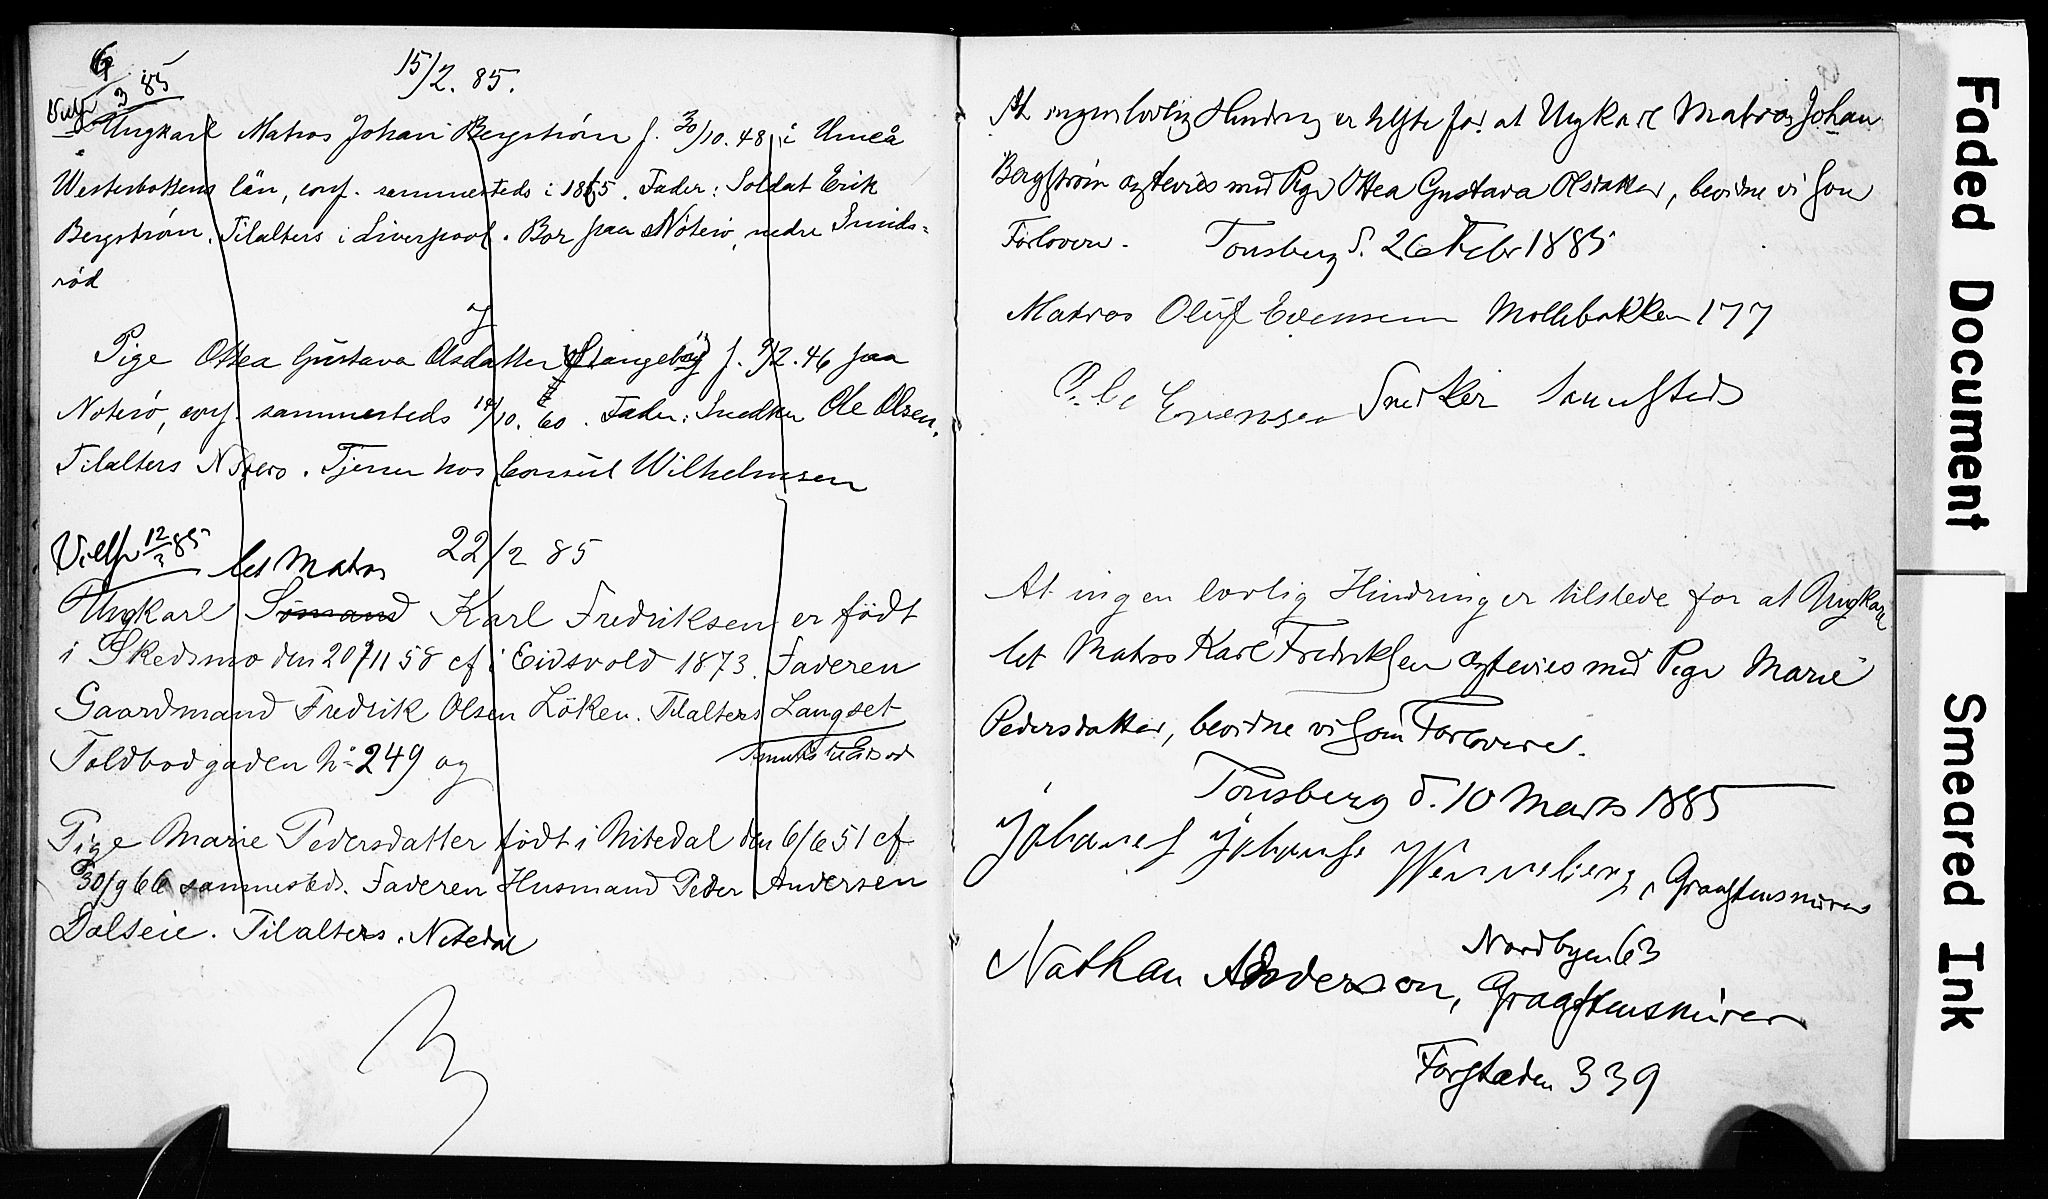 6/3 85
15/2. 85.
Viet
Ungkarl Matros Johan Bergström f. 30/10. 48 i Umeå
Westerbottens län, conf. sammesteds i 1865. Fader: Soldat Erik
Bergström. Tilalters i Liverpool. Bor paa Nöterö, nedre Smids-
röd
og
Pige Ottea Gustava Olsdatter Stangeby f. 9/2. 46 paa
Nöterö, conf. sammesteds 14/10. 60. Fader: Snedker Ole Olsen.
Tilalters Nöterö. Tjener hos Consul Wilhelmsen
Viet 12/3 85
22/2 85
let Matros
Ungkarl Sömand Karl Fredriksen er födt
i Skedsmo den 20/11 58 cf i Eidsvold 1873. Faderen
Gaardmand Fredrik Olsen Löken. Tilalters Langset
Toldbodgaden No 249 og
Pige Marie Pedersdatter födt i Nitedal den 6/6 51 cf
30/9 66 sammesteds. Faderen Husmand Peder Andersen
Dalseie. Tilalters. Nitedal
At ingen lovlig Hindring er tilstede for at Ungkarl Matros Johan
Bergström ægtevies med Pige Ottea Gustava Olsdatter, bevidne vi som
Forlovere. Tonsberg d. 26 Febr 1885
Matros Oluf Evensen Mollebakken 177
Evensen Snedker Sammesteds
At ingen lovlig Hindring er tilstede for at Ungkarl
let Matros Karl Fredriksen ægtevies med Pige Marie
Pedersdatter, bevidne vi som Forlovere.
Tonsberg d. 10 Marts 1885
Johanes Johansen Wenneberg, Graastensmurer
Nordbyen 63
Nathan Anderson, Graastensmürer
Forstaden 339
Faded Document
Smeared Ink